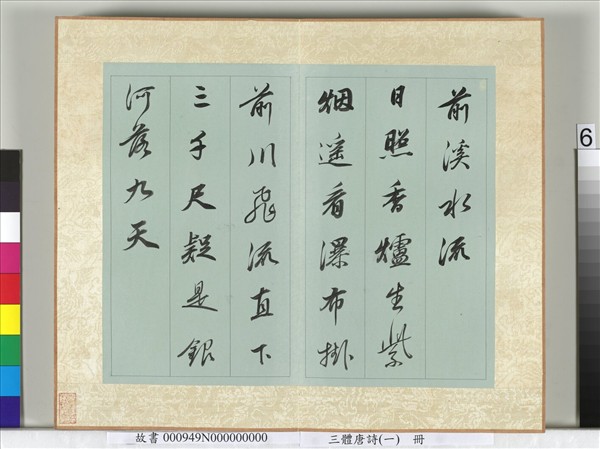 前溪水流
日照香爐生紫
烟遥看瀑布掛
前川飛流直下
三千尺疑是銀
河落九天
6
故書 000949N000000000
三體唐詩(一) 冊